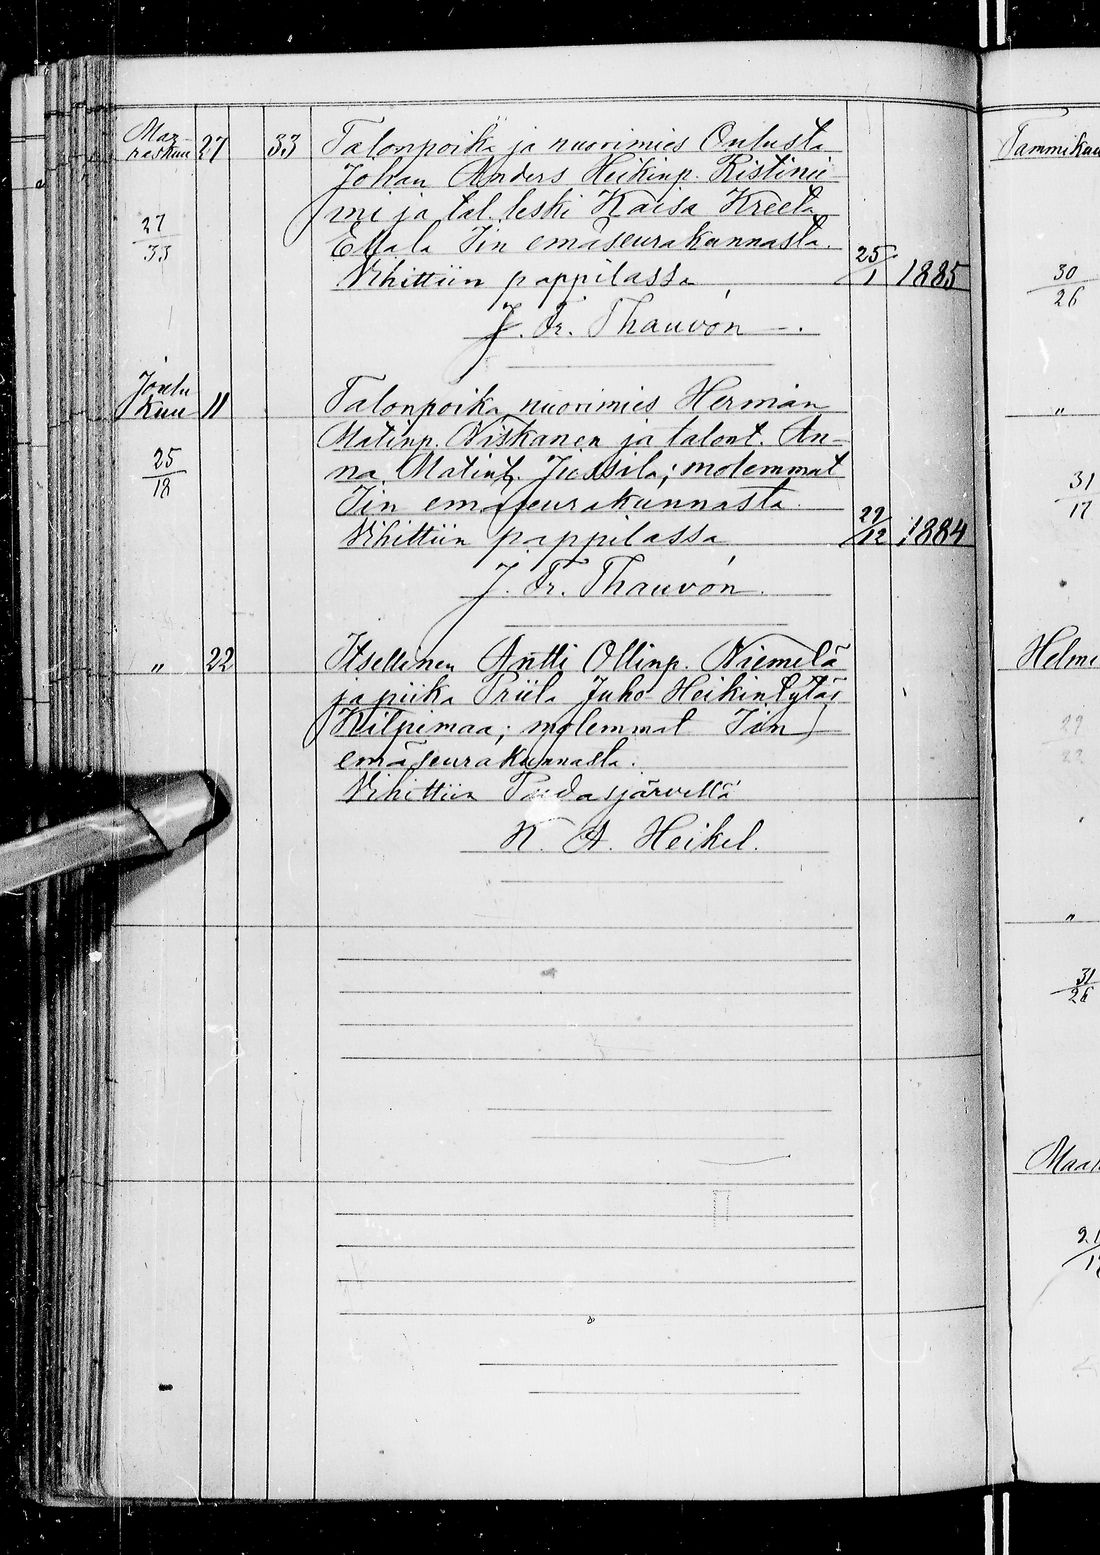 Mar-
raskuu 27 33 Talonpoika ja nuorimies Oulusta
Johan Anders Heikinp. Ristinie
mi ja tal. leski Kaisa Kreeta
27/33
Ellala Iin emäseurakunnasta.
Vihittiin pappilassa 25/1 1885
J. Fr. Thauvón
Joulu
kuu 11 Talonpoika nuorimies Herman
Matinp. Niskanen ja talont. An-
25/18
na Matint. Jussila; molemmat
Iin emäseurakunnasta.
Vihittiin pappilassa 29/12 1884
J. Fr. Thauvón.
" 22 Itsellinen Antti Ollinp. Niemelä
ja piika Priita Juho Heikintytär
Kilpimaa; molemmat Iin
emäseurakunnasta.
Vihittiin Pudasjärvellä
K. A. Heikel.
Tammikuu
30/26
"
31/17
Helmi
29/22
"
31/26